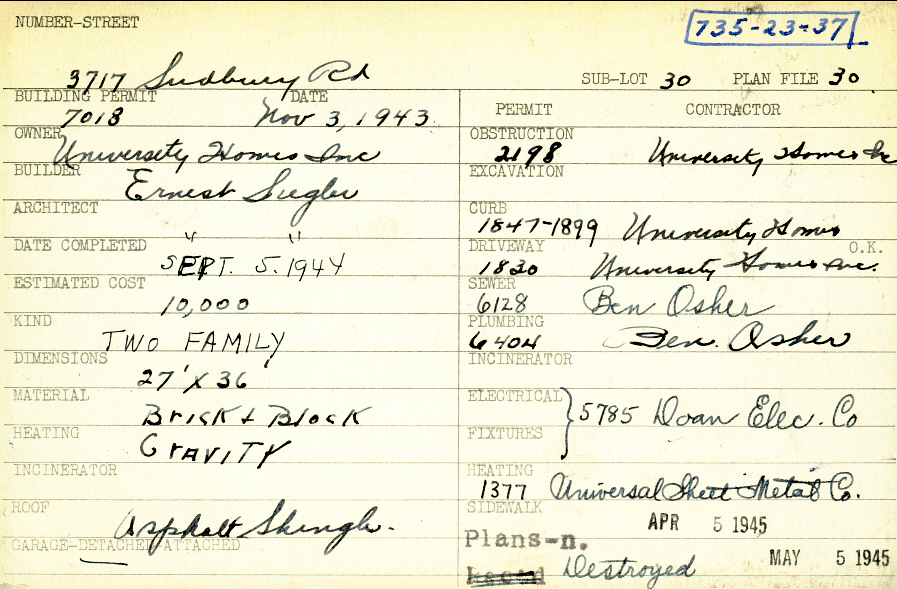 NUMBER-STREET
735-23-37
3717 Sudbury Rd
SUB-LOT 30 PLAN FILE 30
BUILDING PERMIT DATE
7018 Nov 3, 1943
PERMIT CONTRACTOR
OWNER
University Homes Inc
OBSTRUCTION
2198 University Homes Inc
BUILDER
Ernest Siegler
EXCAVATION
ARCHITECT
" "
CURB
1847-1899 University Homes
DATE COMPLETED
SEPT. 5. 1944
DRIVEWAY O.K.
1830 University Homes Inc.
ESTIMATED COST
10,000
SEWER
6128 Ben Osher
KIND
TWO FAMILY
PLUMBING
6404 Ben. Osher
DIMENSIONS
27' X 36
INCINERATOR
MATERIAL
Brick & Block
ELECTRICAL
5785 Doan Elec. Co
HEATING
GRAVITY
FIXTURES
INCINERATOR
HEATING
1377 Universal Sheet Metal Co.
ROOF
Asphalt Shingle.
SIDEWALK
APR 5 1945
GARAGE-DETACHED-ATTACHED
Plans-n.
MAY 5 1945
Destroyed